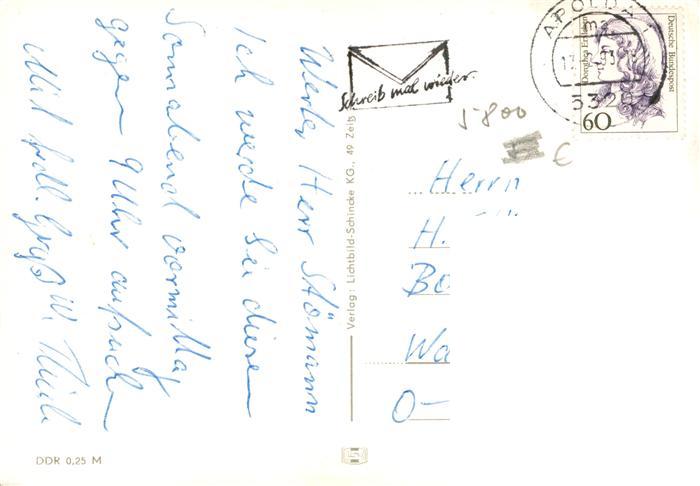 Werter Herr Stömann
Ich werde Sie diesen
Sonnabend vormittag
gegen 9 Uhr aufsuchen
Mit frdl. Gruß W.
Verlag: Lichtbild-Schincke KG., 49 Zeitz
Schreib mal wieder.
APOLDA
5320
Deutsche Bundespost
Dorothea Erxleben
60
5800
€
Herrn
H.
Bo
Wa
O-
DDR 0,25 M